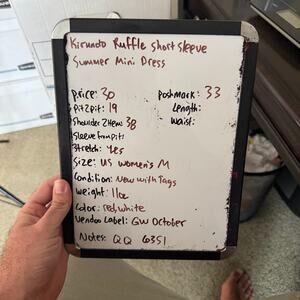 Kirundo Ruffle short sleeve
Summer Mini Dress
price: 30
poshmark: 33
pit2pit: 19
Length:
Shoulder 2 Hem: 38
Waist:
Sleeve from pit:
Stretch: yes
Size: US women's M
Condition: New with Tags
weight: 11oz
Color: red, white
Vendoo Label: GW October
Notes: QQ 6351